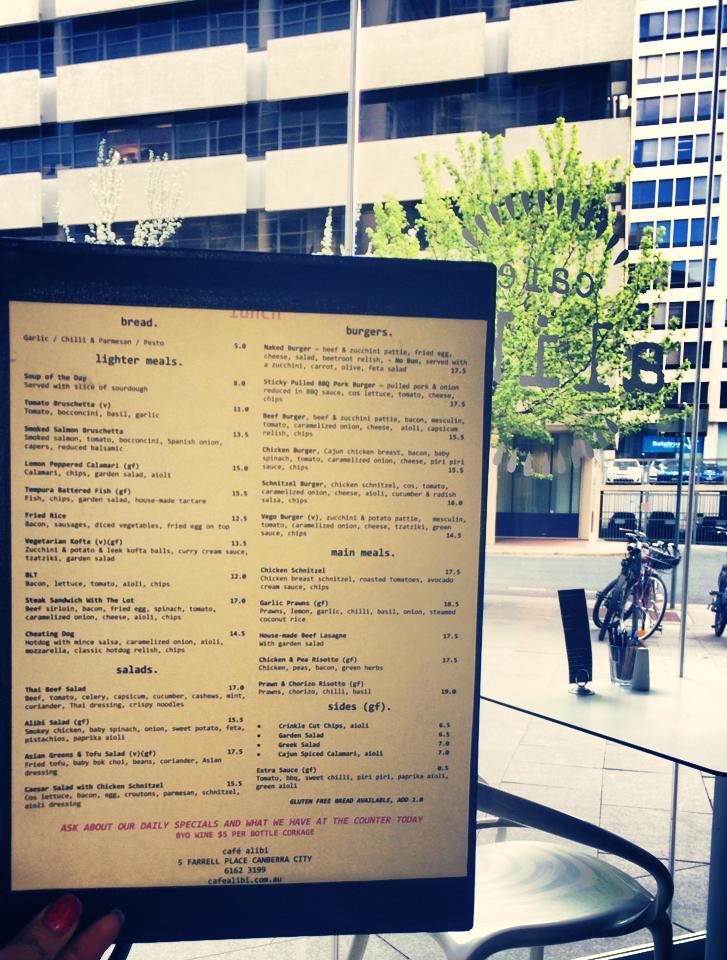 lunch
bread.
Garlic / Chilli & Parmesan / Pesto 5.0
lighter meals.
Soup of the Day 8.0
Served with slice of sourdough
Tomato Bruschetta (v) 11.0
Tomato, bocconcini, basil, garlic
Smoked Salmon Bruschetta 13.5
Smoked salmon, tomato, bocconcini, Spanish onion,
capers, reduced balsamic
Lemon Peppered Calamari (gf) 15.0
Calamari, chips, garden salad, aioli
Tempura Battered Fish (gf) 15.5
Fish, chips, garden salad, house-made tartare
Fried Rice 12.5
Bacon, sausages, diced vegetables, fried egg on top
Vegetarian Kofta (v)(gf) 13.5
Zucchini & potato & leek kofta balls, curry cream sauce,
tzatziki, garden salad
BLT 12.0
Bacon, lettuce, tomato, aioli, chips
Steak Sandwich With The Lot 17.0
Beef sirloin, bacon, fried egg, spinach, tomato,
caramelized onion, cheese, aioli, chips
Cheating Dog 14.5
Hotdog with mince salsa, caramelized onion, aioli,
mozzarella, classic hotdog relish, chips
salads.
Thai Beef Salad 17.0
Beef, tomato, celery, capsicum, cucumber, cashews, mint,
coriander, Thai dressing, crispy noodles
Alibi Salad (gf) 15.5
Smokey chicken, baby spinach, onion, sweet potato, feta,
pistachios, paprika aioli
Asian Greens & Tofu Salad (v)(gf) 17.5
Fried tofu, baby bok choi, beans, coriander, Asian
dressing
Caesar Salad with Chicken Schnitzel 15.5
Cos lettuce, bacon, egg, croutons, parmesan, schnitzel,
aioli dressing
burgers.
Naked Burger – beef & zucchini pattie, fried egg,
cheese, salad, beetroot relish, - No Bun, served with
a zucchini, carrot, olive, feta salad 17.5
Sticky Pulled BBQ Pork Burger – pulled pork & onion
reduced in BBQ sauce, cos lettuce, tomato, cheese,
chips 17.5
Beef Burger, beef & zucchini pattie, bacon, mesculin,
tomato, caramelized onion, cheese, aioli, capsicum
relish, chips 15.5
Chicken Burger, Cajun chicken breast, bacon, baby
spinach, tomato, caramelized onion, cheese, piri piri
sauce, chips 15.5
Schnitzel Burger, chicken schnitzel, cos, tomato,
caramelized onion, cheese, aioli, cucumber & radish
salsa, chips 16.0
Vego Burger (v), zucchini & potato pattie, mesculin,
tomato, caramelized onion, cheese, tzatziki, green
sauce, chips 14.5
main meals.
Chicken Schnitzel 17.5
Chicken breast schnitzel, roasted tomatoes, avocado
cream sauce, chips
Garlic Prawns (gf) 18.5
Prawns, lemon, garlic, chilli, basil, onion, steamed
coconut rice
House-made Beef Lasagne 17.5
With garden salad
Chicken & Pea Risotto (gf) 17.5
Chicken, peas, bacon, green herbs
Prawn & Chorizo Risotto (gf)
Prawns, chorizo, chilli, basil 19.0
sides (gf).
• Crinkle Cut Chips, aioli 6.5
• Garden Salad 6.5
• Greek Salad 7.0
• Cajun Spiced Calamari, aioli 7.0
Extra Sauce (gf) 0.5
Tomato, bbq, sweet chilli, piri piri, paprika aioli,
green aioli
GLUTEN FREE BREAD AVAILABLE, ADD 1.0
ASK ABOUT OUR DAILY SPECIALS AND WHAT WE HAVE AT THE COUNTER TODAY
BYO WINE $5 PER BOTTLE CORKAGE
café alibi
5 FARRELL PLACE CANBERRA CITY
6162 3199
cafealibi.com.au
cafe
ali